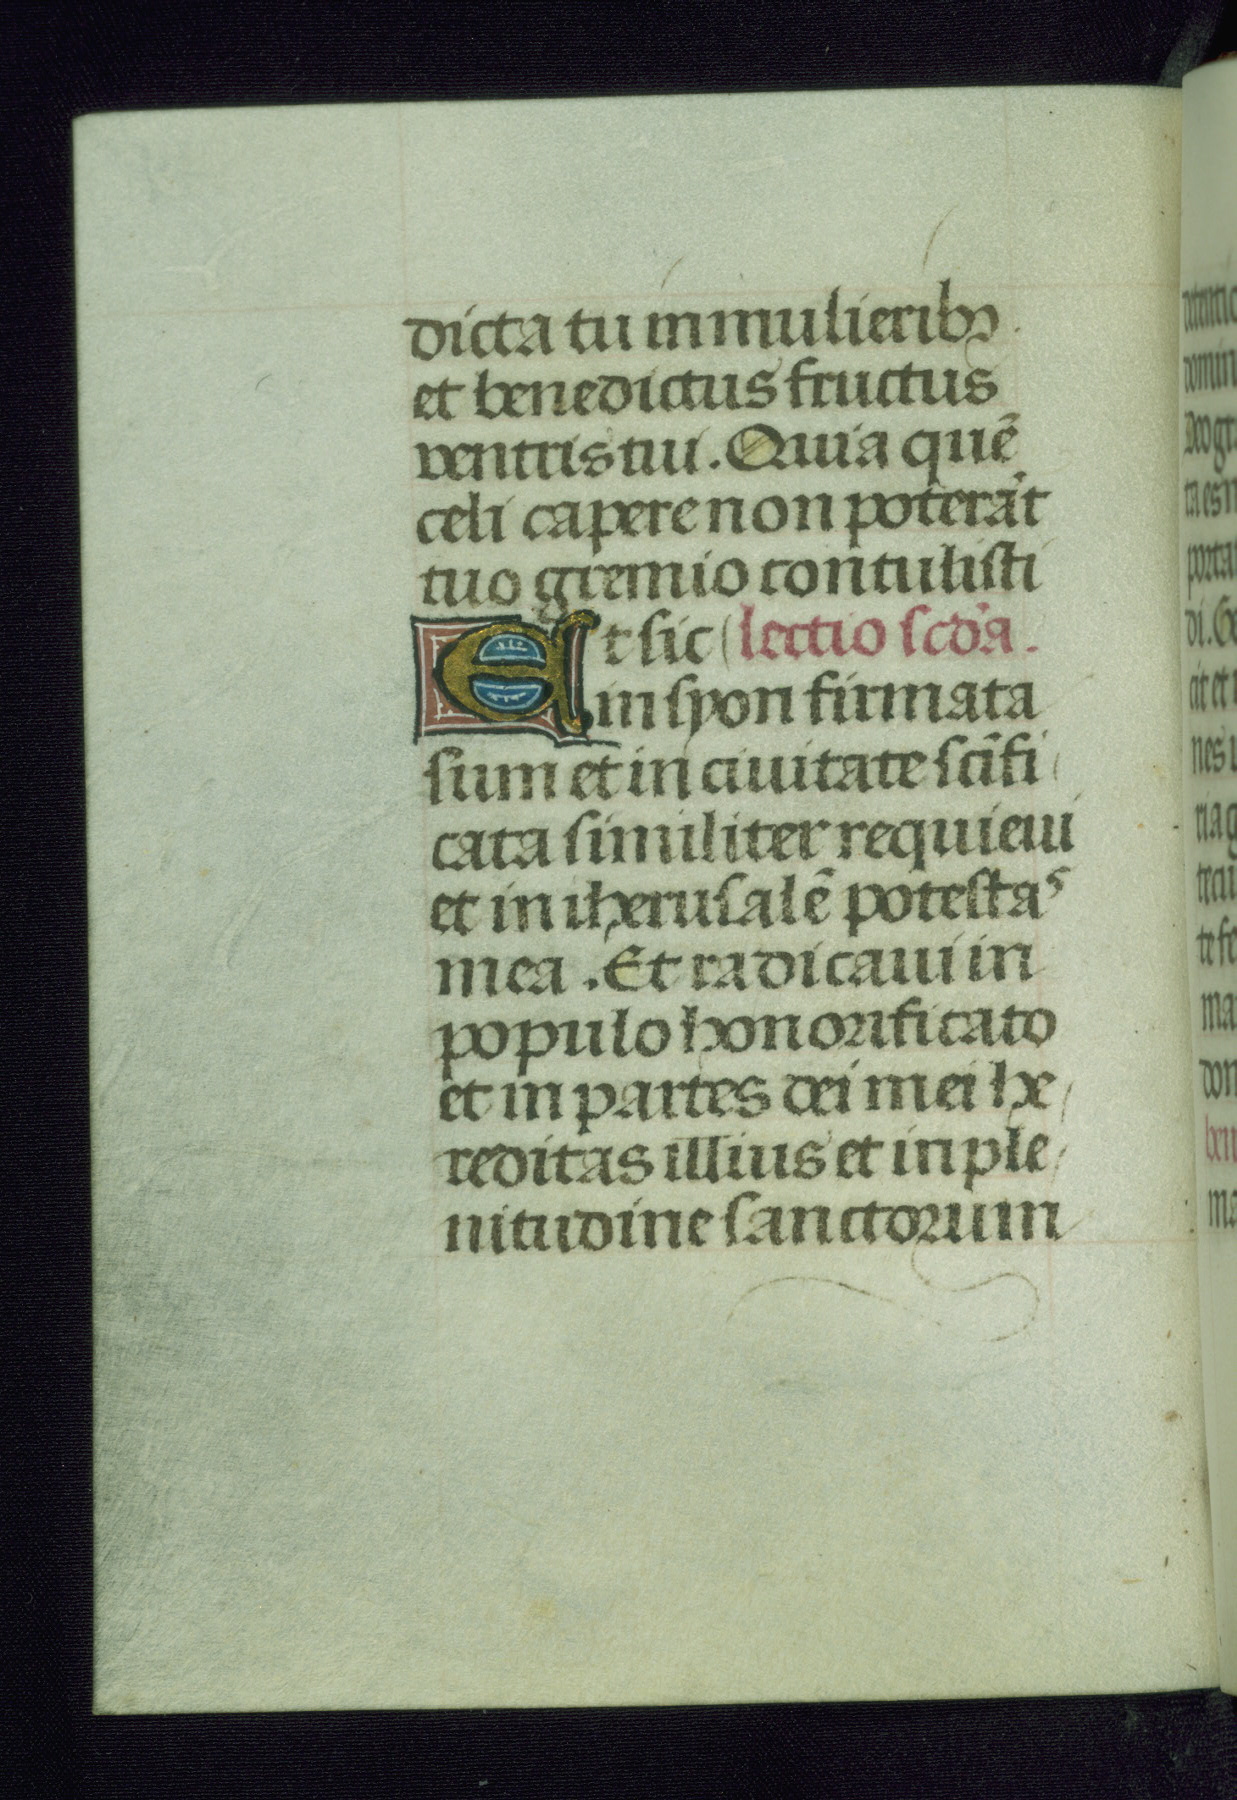 dicta tu in mulieribꝫ.
et benedictus fructus
ventris tui. Quia quē
celi capere non poterāt
tuo gremio contulisti
Et sic lectio scd'a.
in syon firmata
sum et in ciuitate sc̄ifi
cata similiter requieui
et in iherusalē potestas
mea. Et radicaui in
populo honorificato
et in partes dei mei he
reditas illius et in ple
nitudine sanctorum